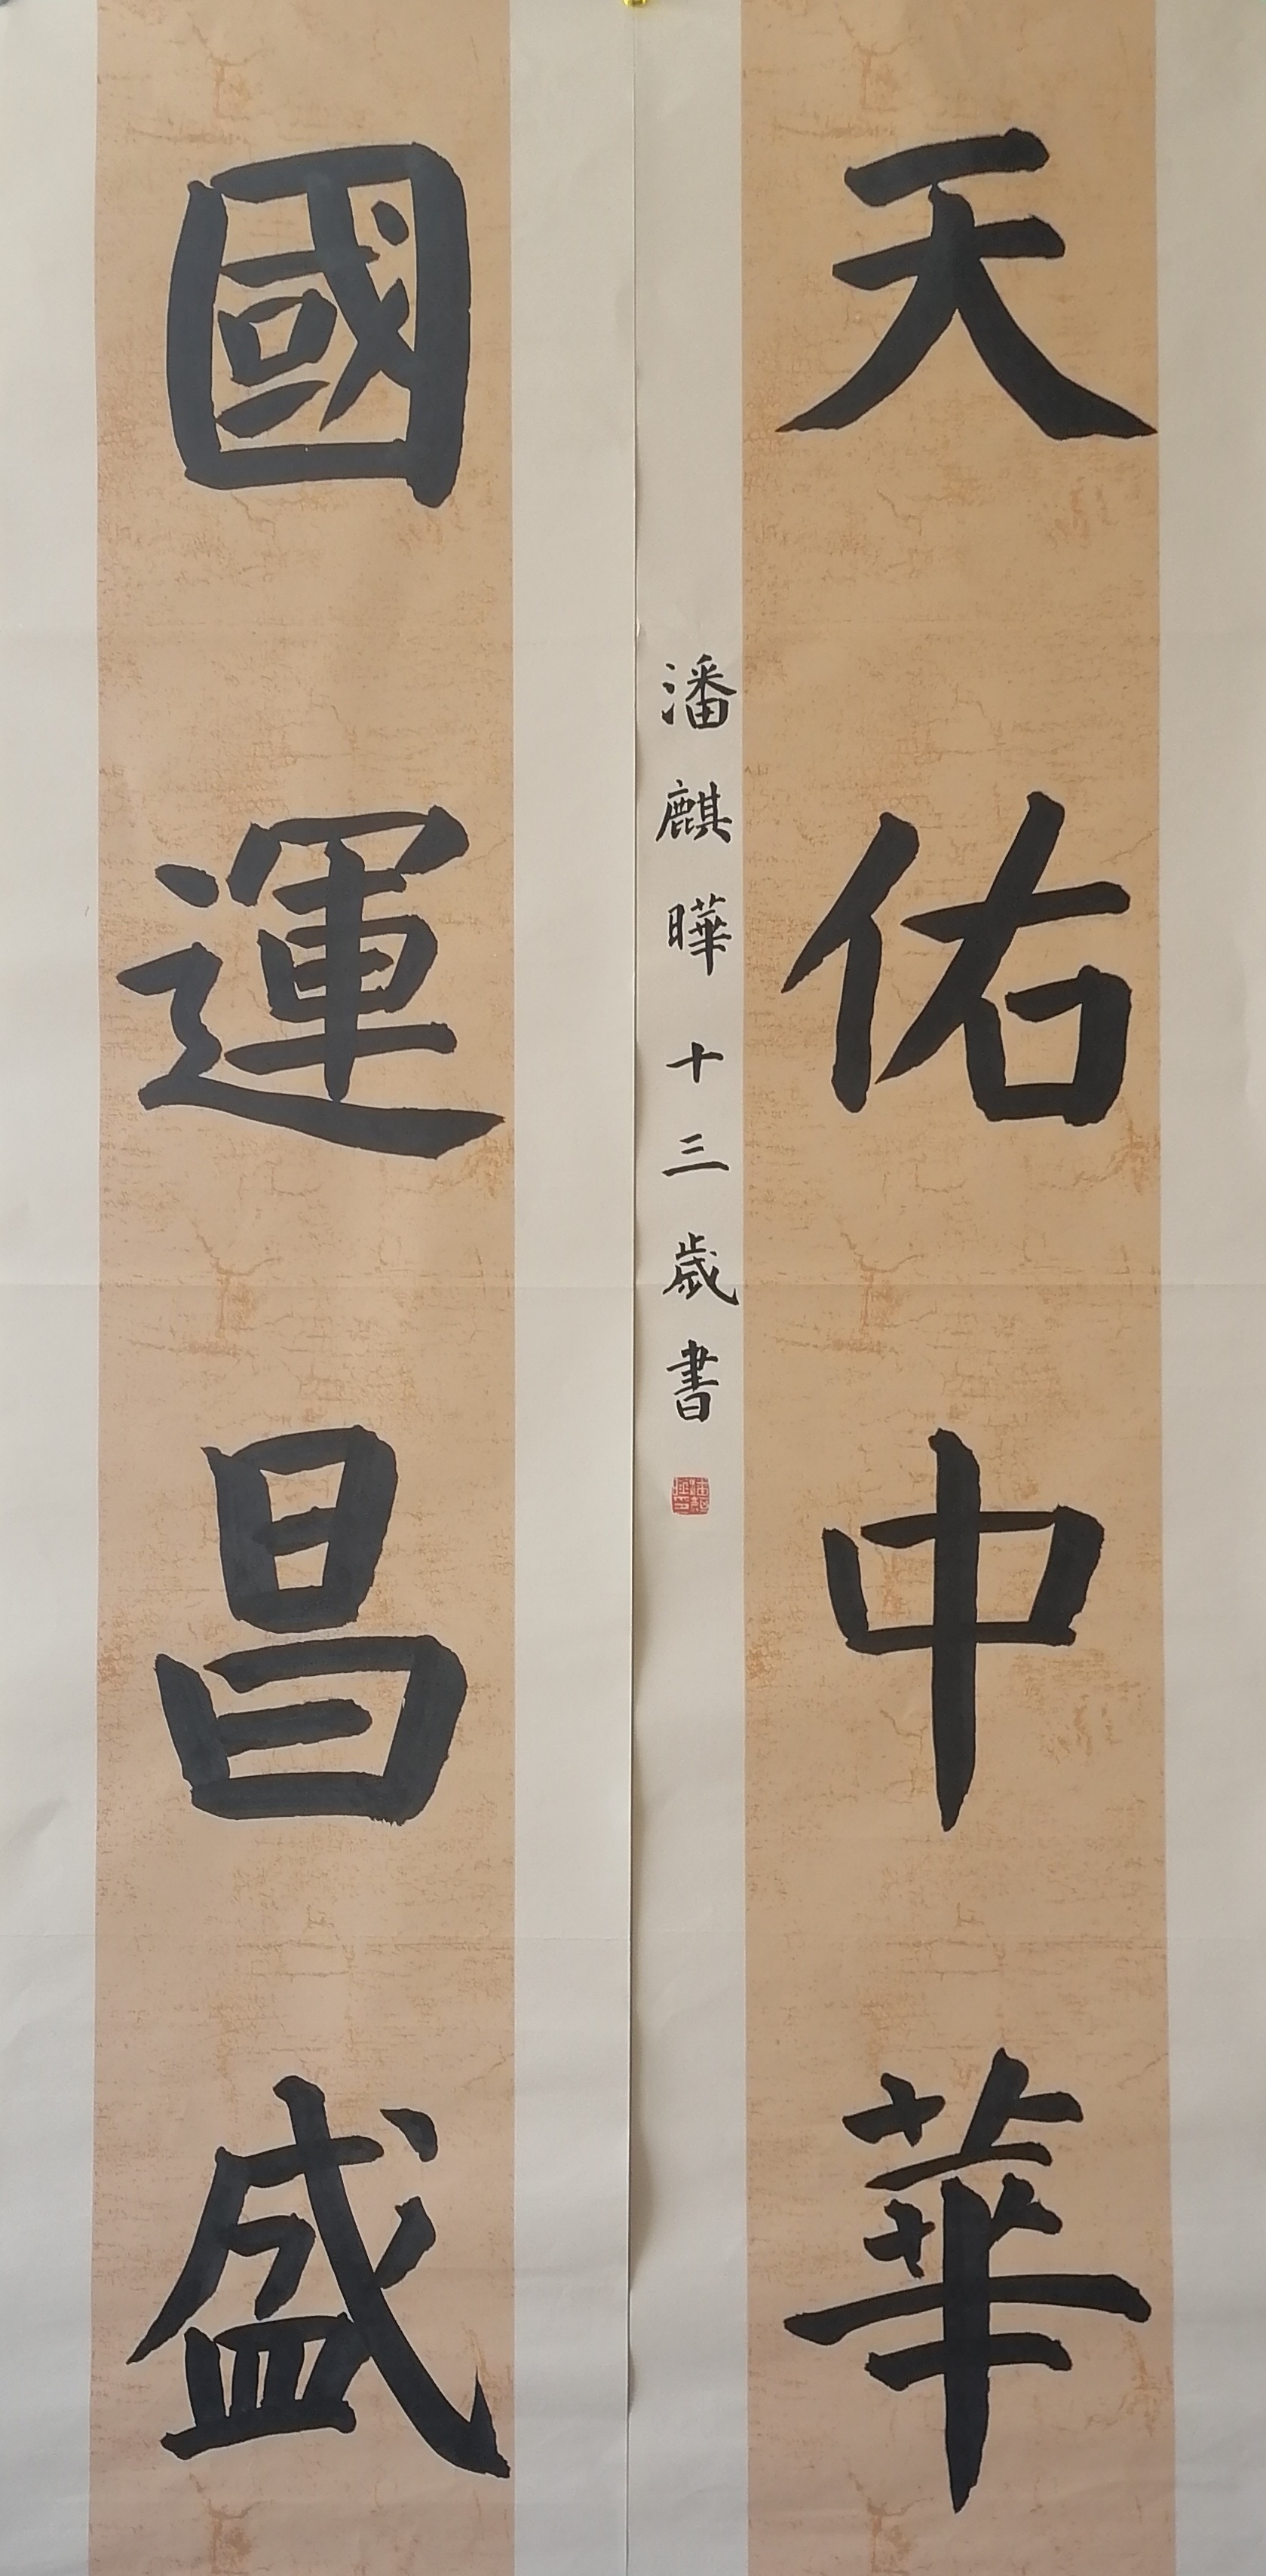 天佑中華
潘麒曄十三歲書
國運昌盛